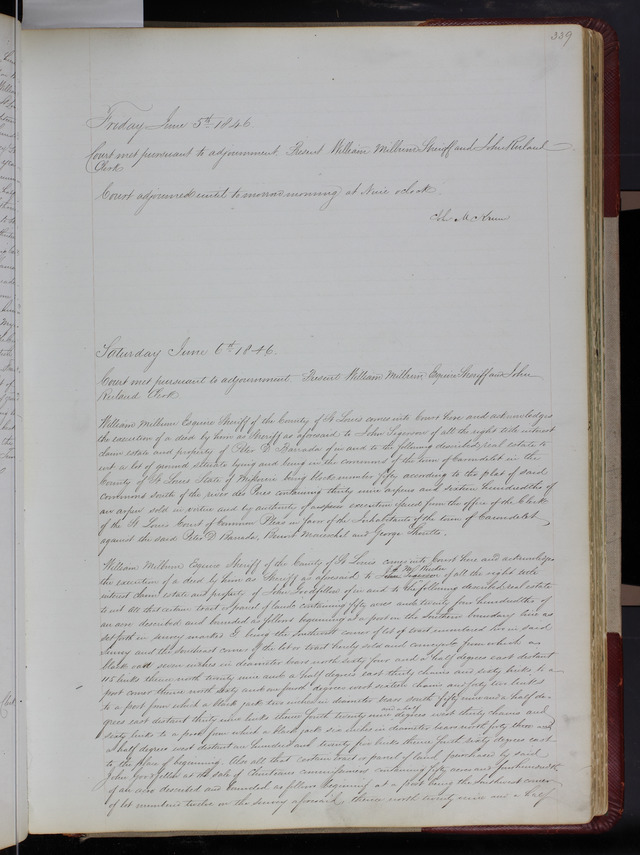 339
Friday June 5th 1846.
Court met pursuant to adjournment Present William Milburn Sheriff and John Ruland
Clerk
Court adjourned until tomorrow morning at Nine o'clock
Saturday June 6th 1846.
Court met pursuant to adjournment. Present William Milburn Esquire Sheriff and John
Ruland Clerk
William Milburn Esquire Sheriff of the County of St Louis comes into Court here and acknowledges
the execution of a deed by him as Sheriff as aforesaid to John of all the right title interest
claim estate and property of Peter D Barrada of in and to the following described real estate to
wit a lot of ground situate lying and being in the commons of the town of Carondelet in the
County of St Louis State of Missouri being block number fifty according to the plat of said
commons south of the river des Peres containing thirty nine arpens and sixteen hundredths of
an arpen sold in virtue and by authority of execution issued from the office of the Clerk
of the St Louis Court of Common Pleas in favor of the Inhabitants of the town of Carondelet,
against the said Peter D Barrada, and George
William Milburn Esquire Sheriff of the County of St Louis comes into Court here and acknowledges
the execution of a deed by him as Sheriff as aforesaid to of all the right title
interest claim estate and property of John Goodfellow of in and to the following described real estate
to wit All that certain tract or parcel of land containing fifty acres and twenty four hundredths of
an acre described and bounded as follows beginning at a post on the Southern boundary line as
set forth in survey marked G being the Southwest corner of lot of tract numbered five in said
Survey and the Southeast corner of the lot or tract hereby sold and conveyed from which a
black oak seven inches in diameter bears north sixty four and a half degrees east distant
115 links thence north twenty nine and a half degrees east thirty chains and sixty links to a
post corner thence north sixty and one fourth degrees west sixteen chains and fifty two links
to a post from which a black jack two inches in diameter bears south fifty nine and a half de-
grees east distant thirty nine links thence South twenty nine and a half degrees west thirty chains and
sixty links to a post from which a black jack six inches in diameter bears north fifty three and
a half degrees west distant one hundred and twenty five links thence South sixty degrees east
to the place of beginning. Also all that certain tract or parcel of land purchased by said
John Goodfellow at the sale of containing fifty acres and
of an acre described and bounded as follows beginning at a post being the Southeast corner
of lot numbered twelve on the survey aforesaid thence north twenty nine and a half